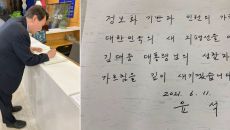 정보화 기반과 인권의 가
대한민국의 새 지평선을
김대중 대통령님의 성찰과
가르침을 깊이 새기겠습니다
2021. 6. 11.
윤 석